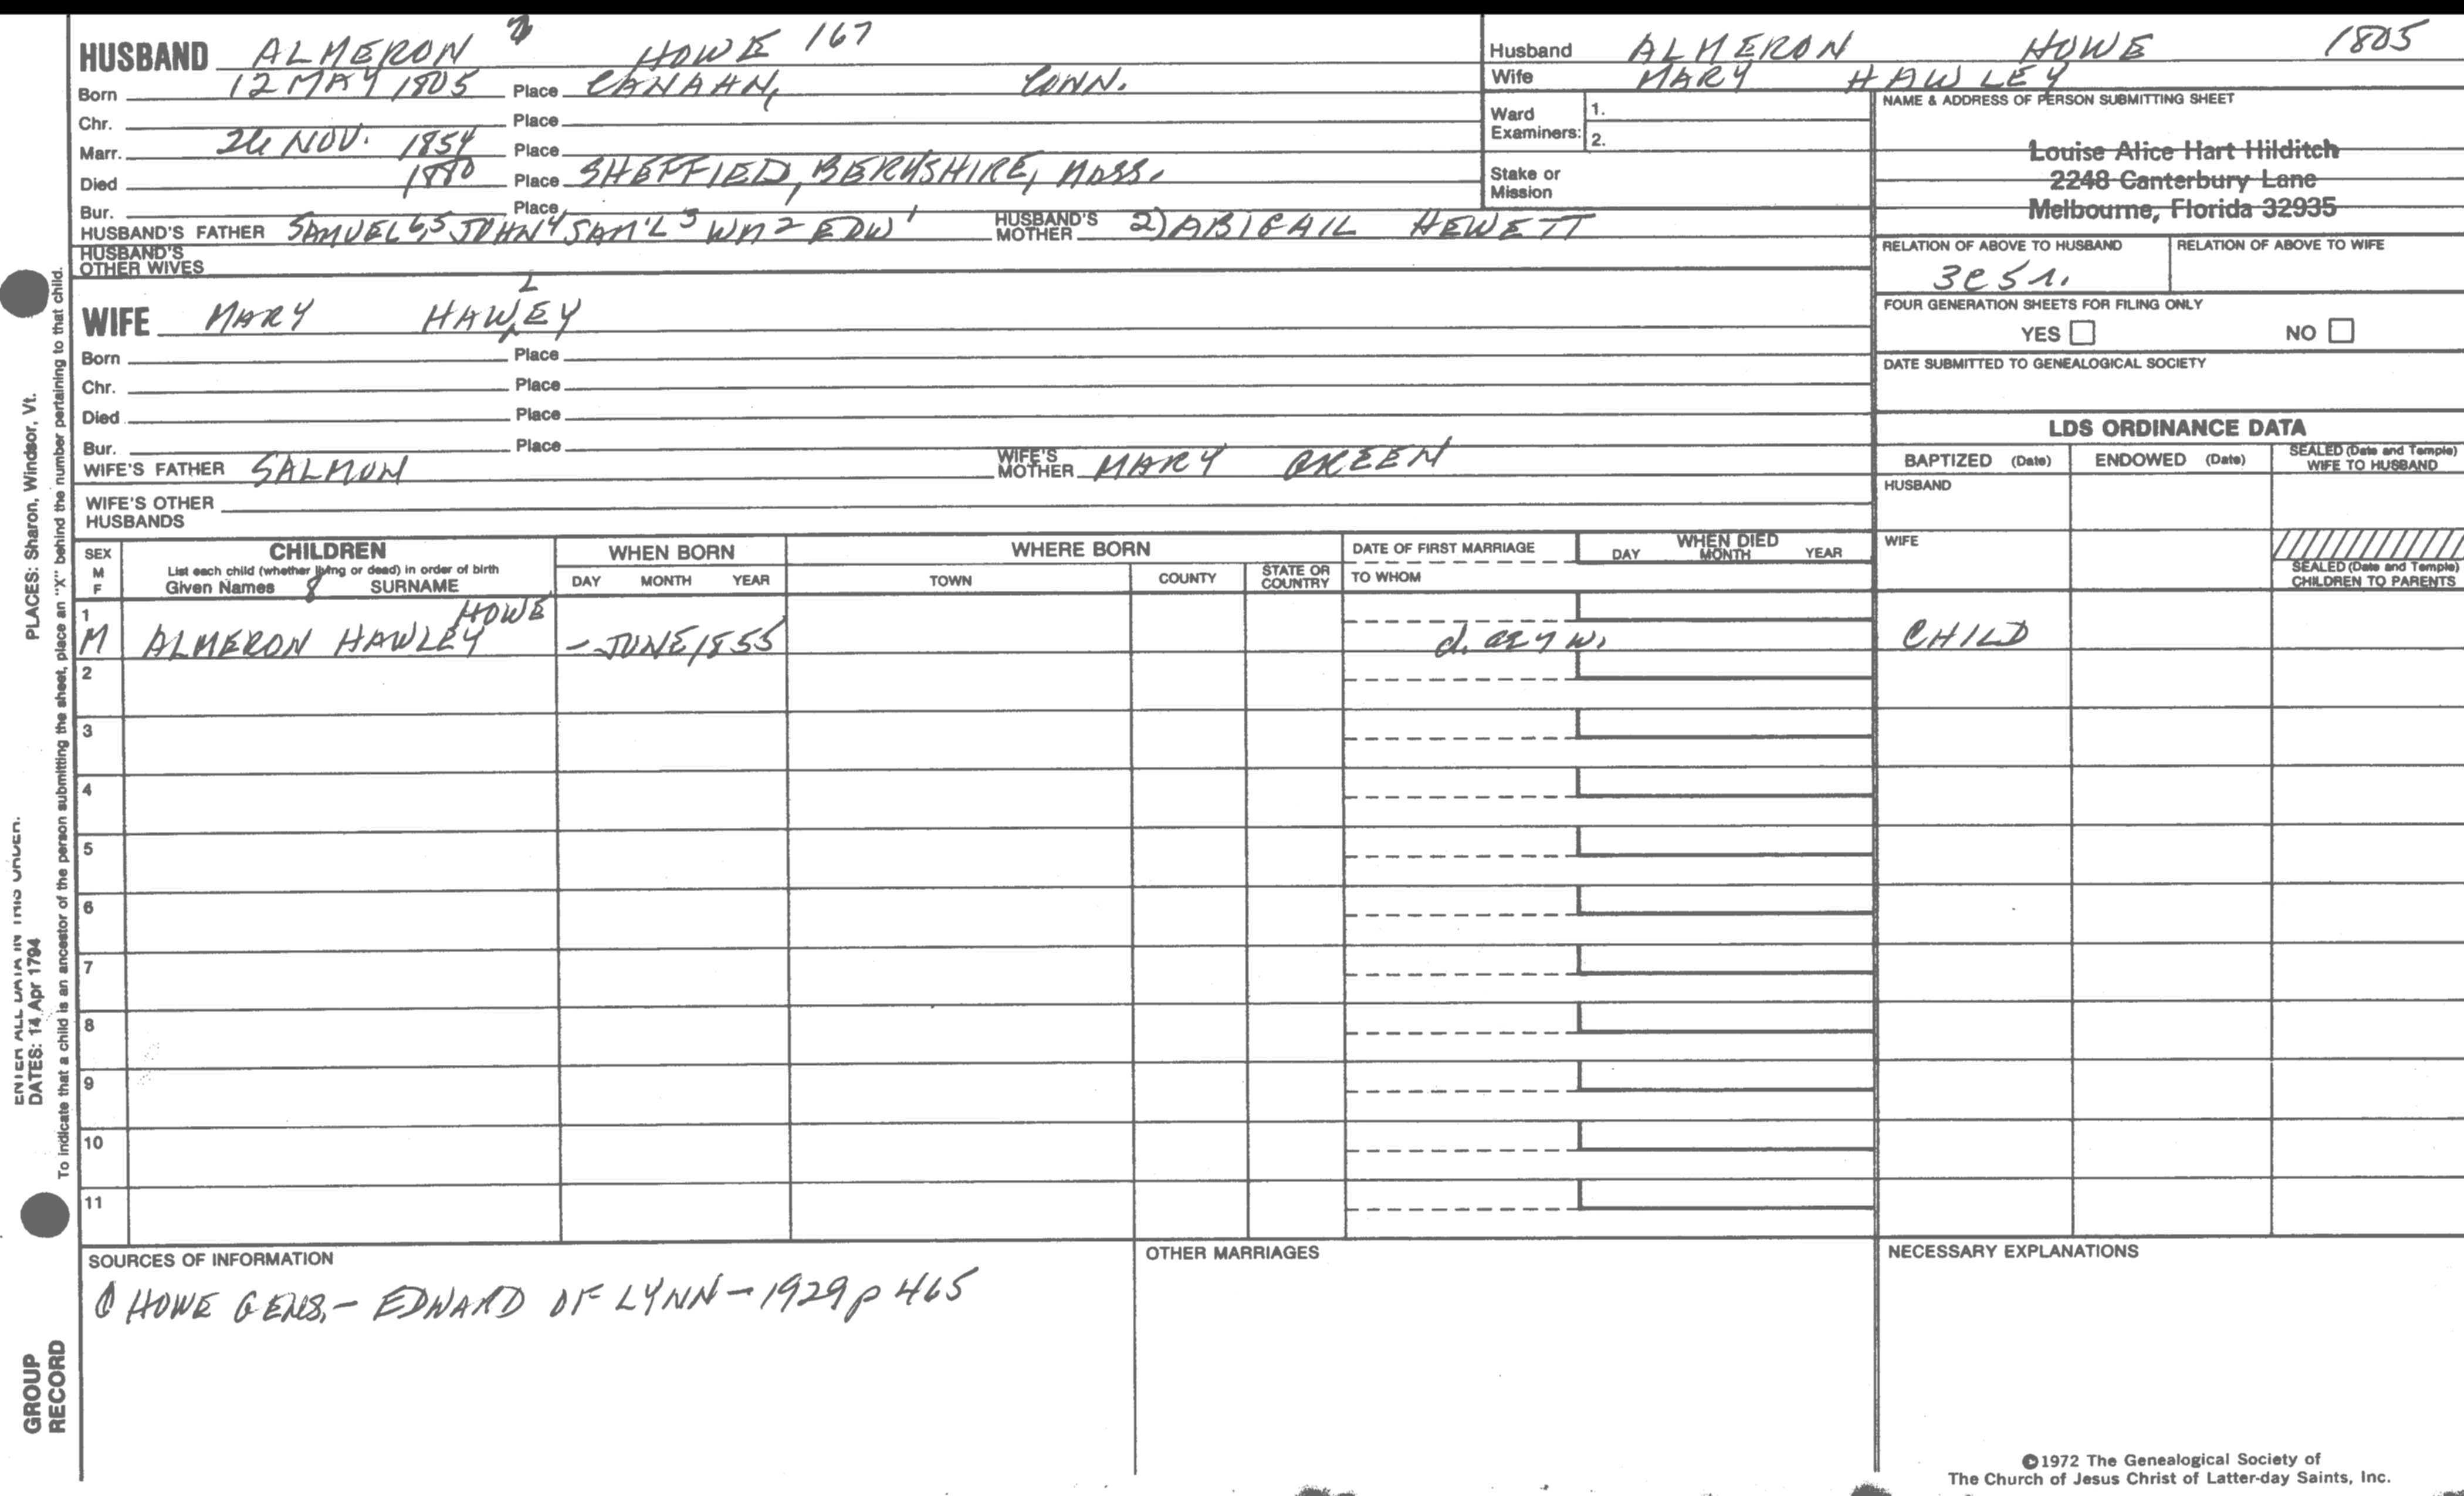 HUSBAND ALMERON 7 HOWE 167
Born 12 MAY 1805 Place CANAAN, CONN.
Chr. Place
Marr. 26 NOV. 1854 Place
Died 1880 Place SHEFFIED, BERKSHIRE, MASS.
Bur. Place
HUSBAND'S FATHER SAMUEL 6,5 JOHN 4 SAM'L 3 WM 2 EDW 1 HUSBAND'S MOTHER 2) ABIGAIL HEWETT
HUSBAND'S OTHER WIVES
WIFE MARY HAWLEY
Born Place
Chr. Place
Died Place
Bur. Place
WIFE'S FATHER SALMON WIFE'S MOTHER MARY GREEN
WIFE'S OTHER HUSBANDS
Husband ALMERON HOWE 1805
Wife MARY HAWLEY
Ward Examiners: 1.
2.
Stake or Mission
NAME & ADDRESS OF PERSON SUBMITTING SHEET
Louise Alice Hart Hilditch
2248 Canterbury Lane
Melbourne, Florida 32935
RELATION OF ABOVE TO HUSBAND RELATION OF ABOVE TO WIFE
3C5r.
FOUR GENERATION SHEETS FOR FILING ONLY
YES NO
DATE SUBMITTED TO GENEALOGICAL SOCIETY
LDS ORDINANCE DATA
BAPTIZED (Date) ENDOWED (Date) SEALED (Date and Temple) WIFE TO HUSBAND
HUSBAND
WIFE
SEALED (Date and Temple) CHILDREN TO PARENTS
SEX M F CHILDREN WHEN BORN WHERE BORN DATE OF FIRST MARRIAGE WHEN DIED
List each child (whether living or dead) in order of birth
Given Names 8 SURNAME DAY MONTH YEAR TOWN COUNTY STATE OR COUNTRY TO WHOM DAY MONTH YEAR
1 HOWE
M ALMERON HAWLEY - JUNE 1855 d. CHILD
2
3
4
5
6
7
8
9
10
11
SOURCES OF INFORMATION OTHER MARRIAGES NECESSARY EXPLANATIONS
HOWE GENS. - EDWARD OF LYNN - 1929 p 465
©1972 The Genealogical Society of
The Church of Jesus Christ of Latter-day Saints, Inc.
PLACES: Sharon, Windsor, Vt.
ENTER ALL DATA IN THIS ORDER.
DATES: 14 Apr 1794
To indicate that a child is an ancestor of the person submitting the sheet, place an "X" behind the number pertaining to that child.
GROUP
RECORD